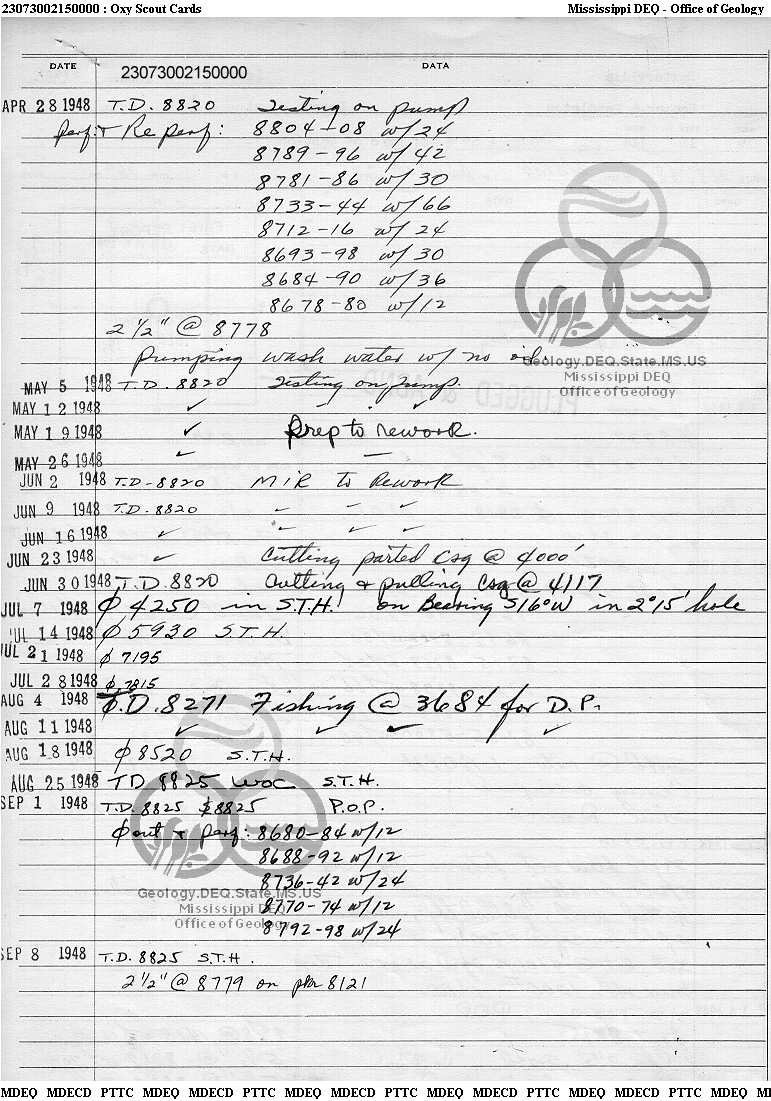 23073002150000 : Oxy Scout Cards Mississippi DEQ - Office of Geology
DATE 23073002150000 DATA
APR 28 1948 T.D. 8820 Testing on pump
perf. + Re perf: 8804-08 w/24
8789-96 w/42
8781-86 w/30
8733-44 w/66
8712-16 w/24
8693-98 w/30
8684-90 w/36
8678-80 w/12
2 1/2" @ 8778
Pumping wash water w/ no oil
Geology.DEQ.State.MS.US
MAY 5 1948 T.D. 8820 Testing on pump.
Mississippi DEQ
Office of Geology
MAY 12 1948 ✓ - ✓
MAY 19 1948 ✓ Prep to rework.
MAY 26 1948 ✓ —
JUN 2 1948 T.D. - 8820 MIR to Rework
JUN 9 1948 T.D. 8820 ✓ ✓ ✓
JUN 16 1948 ✓ ✓ ✓ ✓
JUN 23 1948 ✓ Cutting parted Csg @ 4000'
JUN 30 1948 T.D. 8820 Cutting & pulling Csg @ 4117
JUL 7 1948 φ 4250 in S.T.H. on Bearing S16°W in 2°15' hole
JUL 14 1948 φ 5930 S.T.H.
JUL 21 1948 φ 7195
JUL 28 1948 φ 7815
AUG 4 1948 T.D. 8271 Fishing @ 3684 for D.P.
AUG 11 1948 ✓ ✓ ✓ ✓
AUG 18 1948 φ 8520 S.T.H.
AUG 25 1948 TD 8825 WOC S.T.H.
SEP 1 1948 T.D. 8825 $8825 P.O.P.
φ out + perf: 8680-84 w/12
8688-92 w/12
8736-42 w/24
Geology.DEQ.State.MS.US
8770-74 w/12
Mississippi DEQ
Office of Geology
8792-98 w/24
SEP 8 1948 T.D. 8825 S.T.H.
2 1/2" @ 8779 on pkr 8121
MDEQ MDECD PTTC MDEQ MDECD PTTC MDEQ MDECD PTTC MDEQ MDECD PTTC MDEQ MDECD PTTC MDEQ MI